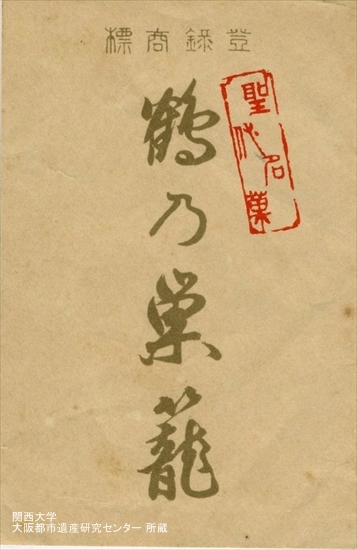 登録商標
聖代名菓
鶴乃巣籠
関西大学
大阪都市遺産研究センター 所蔵